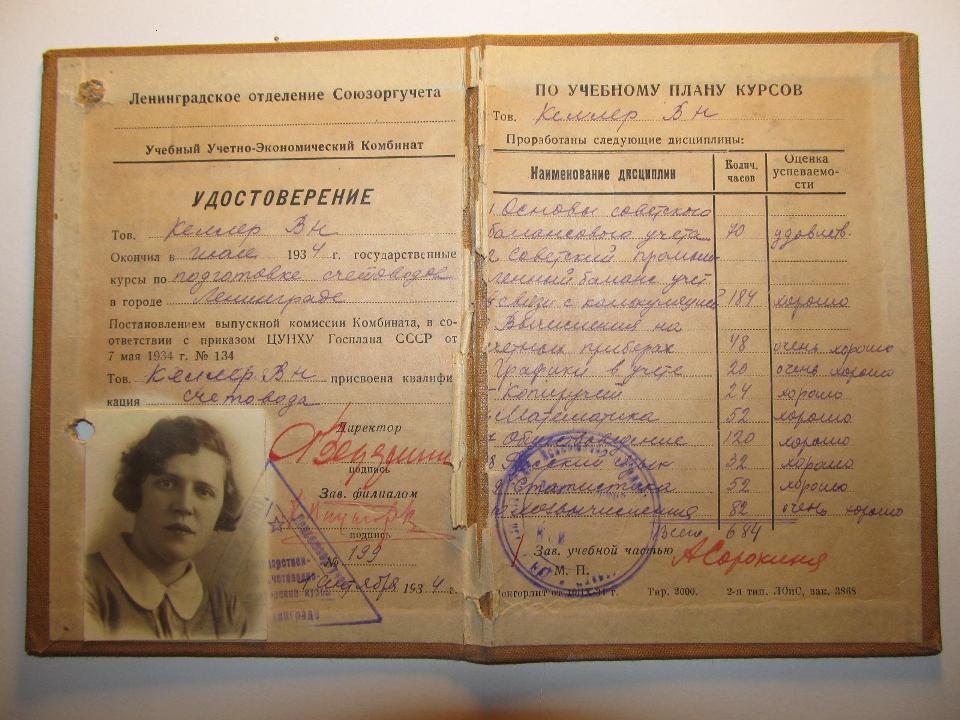 Ленинградское отделение Союзоргучета
Учебный Учетно-Экономический Комбинат
УДОСТОВЕРЕНИЕ
Тов. Келлер В Н
Окончил в июле 1934 г. государственные
курсы по подготовке счетоводов
в городе Ленинграде
Постановлением выпускной комиссии Комбината, в со-
ответствии с приказом ЦУНХУ Госплана СССР от
7 мая 1934 г. № 134
Тов. Келлер В Н присвоена квалифи
кация счетовода
Директор
подпись
Зав. филиалом
подпись
№ 199
1 сентября 1934 г.
ПО УЧЕБНОМУ ПЛАНУ КУРСОВ
Тов. Келлер В Н
Проработаны следующие дисциплины:
Наименование дисциплин Колич. часов Оценка успеваемо-сти
1 Основы советского
балансового учета 70 удовлетв.
2 Советский промыш
ленный баланс учет
связи с калькуляцией 184 хорошо
Вычисления на
счетных приборах 48 очень хорошо
Графики в учете 20 очень хорошо
24 хорошо
Математика 52 хорошо
120 хорошо
8 Русский язык 32 хорошо
9 Статистика 52 хорошо
82 очень хорошо
Всего 684
Зав. учебной частью А Сорокина
М. П.
Тир. 2000. 2-я тип. ЛОпС, зак. 3868